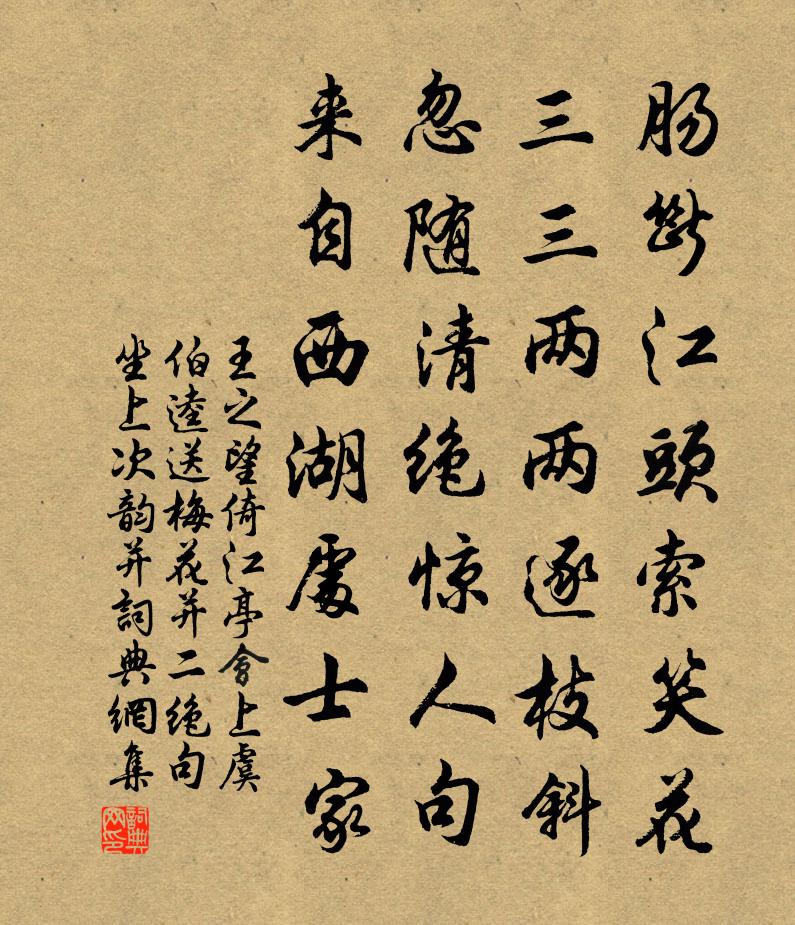 肠断江頭索笑花
三三两两逐枝斜
忽随清绝惊人句
来自西湖處士家
王之望倚江亭會上虞
伯逵送梅花并二绝句
坐上次韵并詞典網集
詞典网印